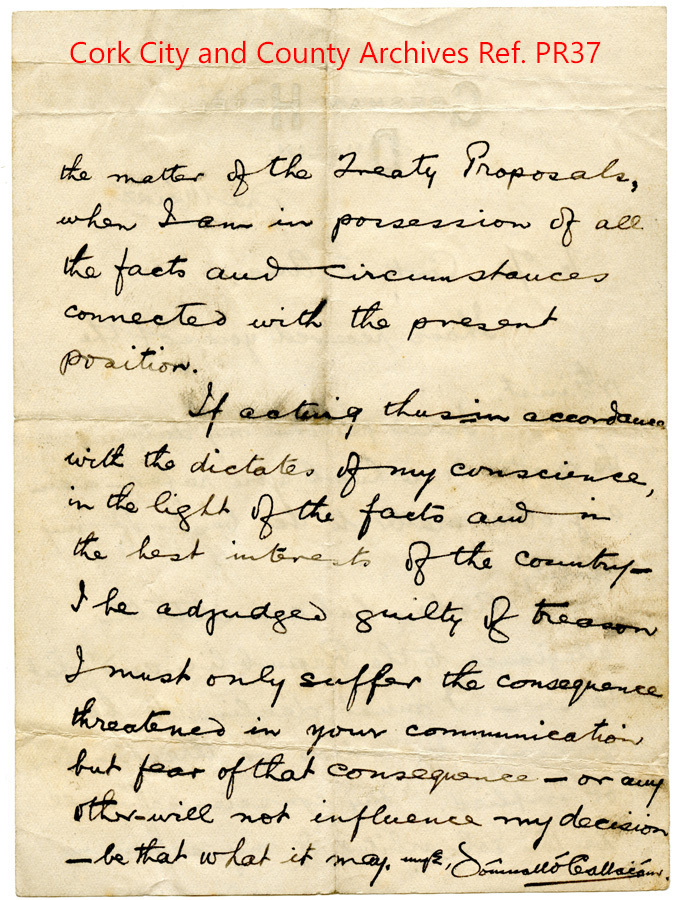 Cork City and County Archives Ref. PR37
the matter of the Treaty Proposals,
when I am in possession of all
the facts and circumstances
connected with the present
position.
If acting thus—in accordance
with the dictates of my conscience,
in the light of the facts and in
the best interests of the country—
I be adjudged guilty of treason
I must only suffer the consequence
threatened in your communication
but fear of that consequence — or any
other—will not influence my decision
— be that what it may.